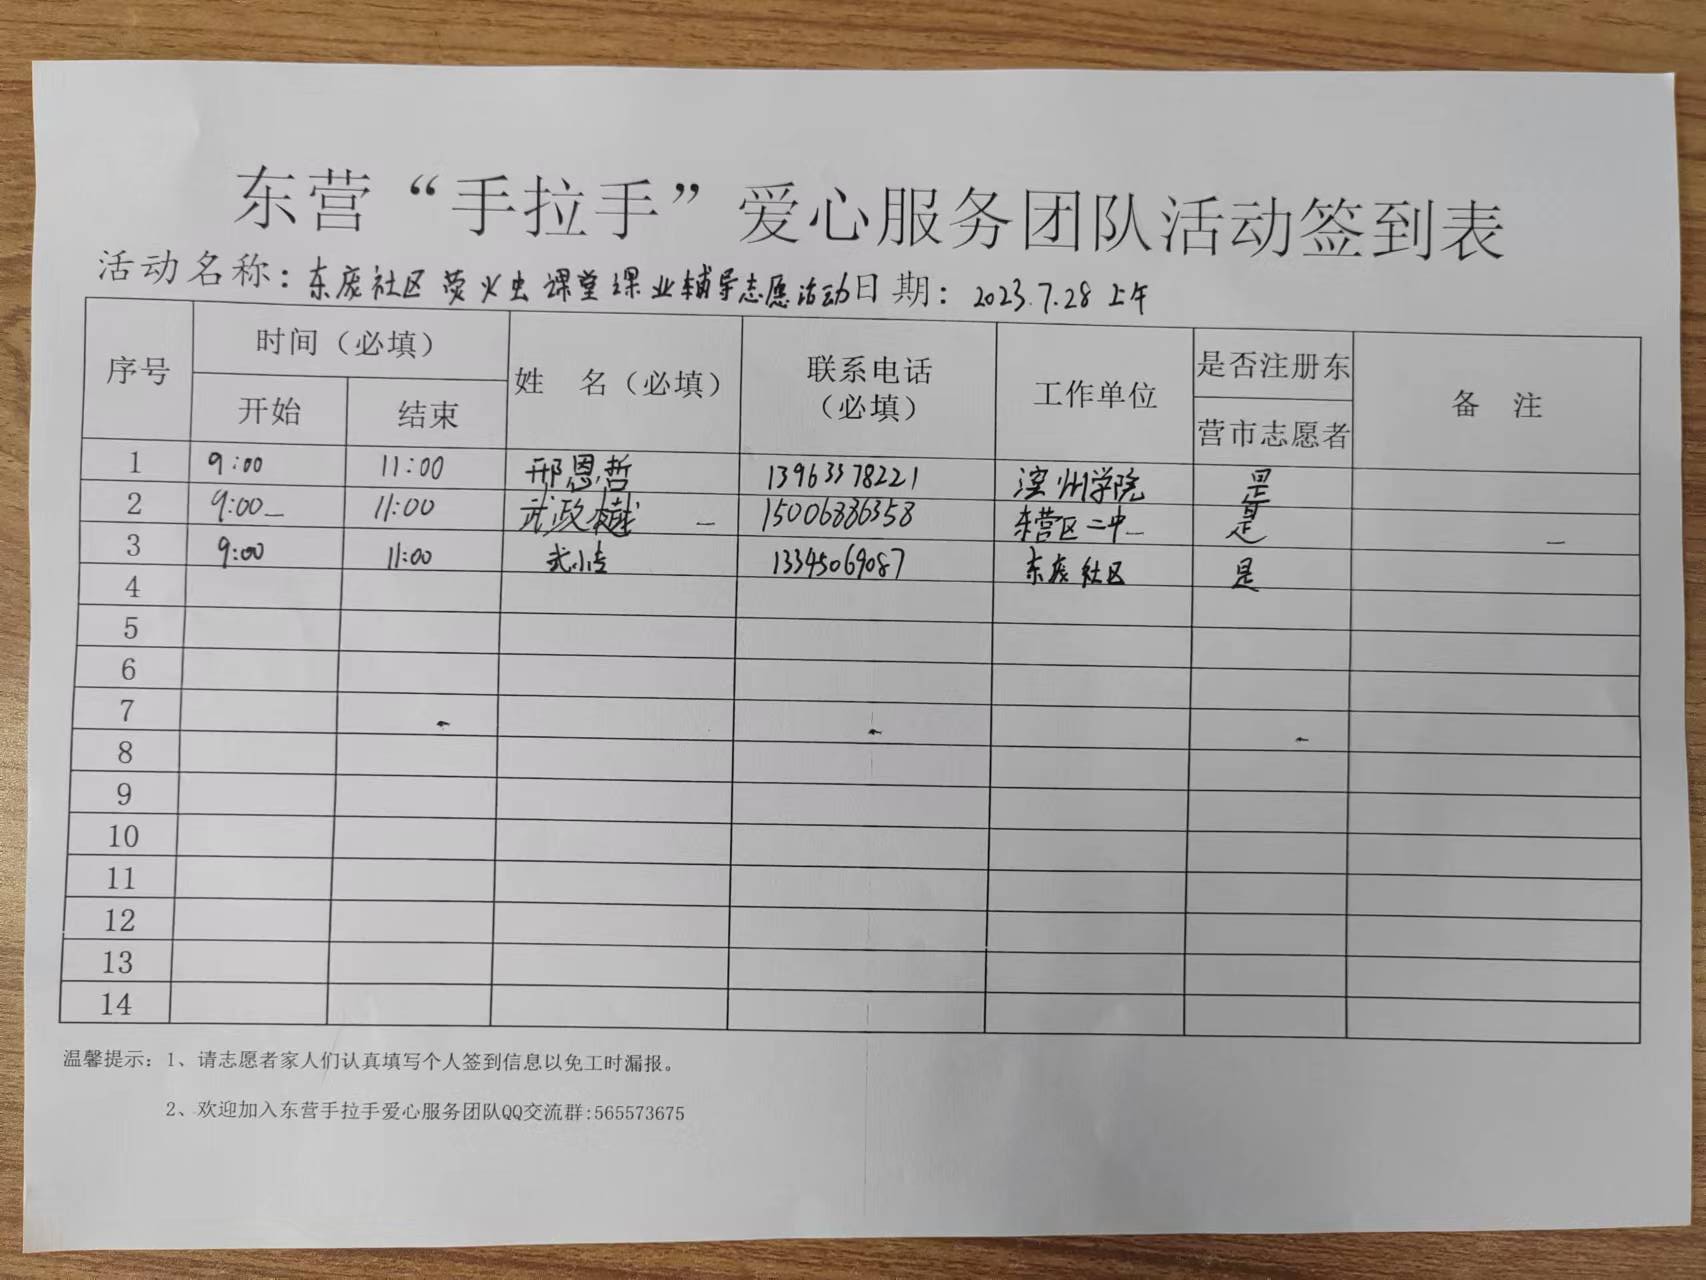 东营“手拉手”爱心服务团队活动签到表
活动名称：东庞社区 萤火虫 课堂课业辅导志愿活动 日期：2023.7.28 上午
序号 时间（必填） 姓 名（必填） 联系电话（必填） 工作单位 是否注册东营市志愿者 备 注
开始 结束
1 9:00 11:00 邢恩哲 13963378221 滨州学院 是
2 9:00 11:00 武政樾 15006886358 东营区二中 是
3 9:00 11:00 武小 13345069087 东庞社区 是
4
5
6
7
8
9
10
11
12
13
14
温馨提示：1、请志愿者家人们认真填写个人签到信息以免工时漏报。
2、欢迎加入东营手拉手爱心服务团队QQ交流群:565573675